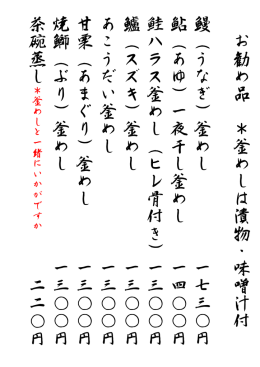 お勧め品　＊釜めしは漬物・味噌汁付
鰻（うなぎ）釜めし　一七三〇円
鮎（あゆ）一夜干し釜めし　一四〇〇円
鮭ハラス釜めし（ヒレ骨付き）　一三〇〇円
鱸（スズキ）釜めし　一三〇〇円
あこうだい釜めし　一三〇〇円
甘栗（あまぐり）釜めし　一三〇〇円
焼鰤（ぶり）釜めし　一三〇〇円
茶碗蒸し＊釜めしと一緒にいかがですか　二二〇円